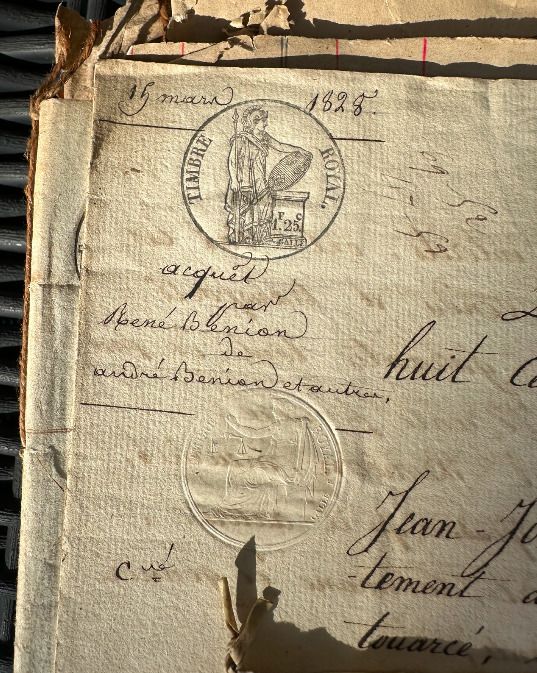 15 mars 1828.
TIMBRE ROYAL.
F C
1.25
acquet
par
René Bénion
de
andré Benion et autres,
huit
Jean-Jo
tement
touarcé,